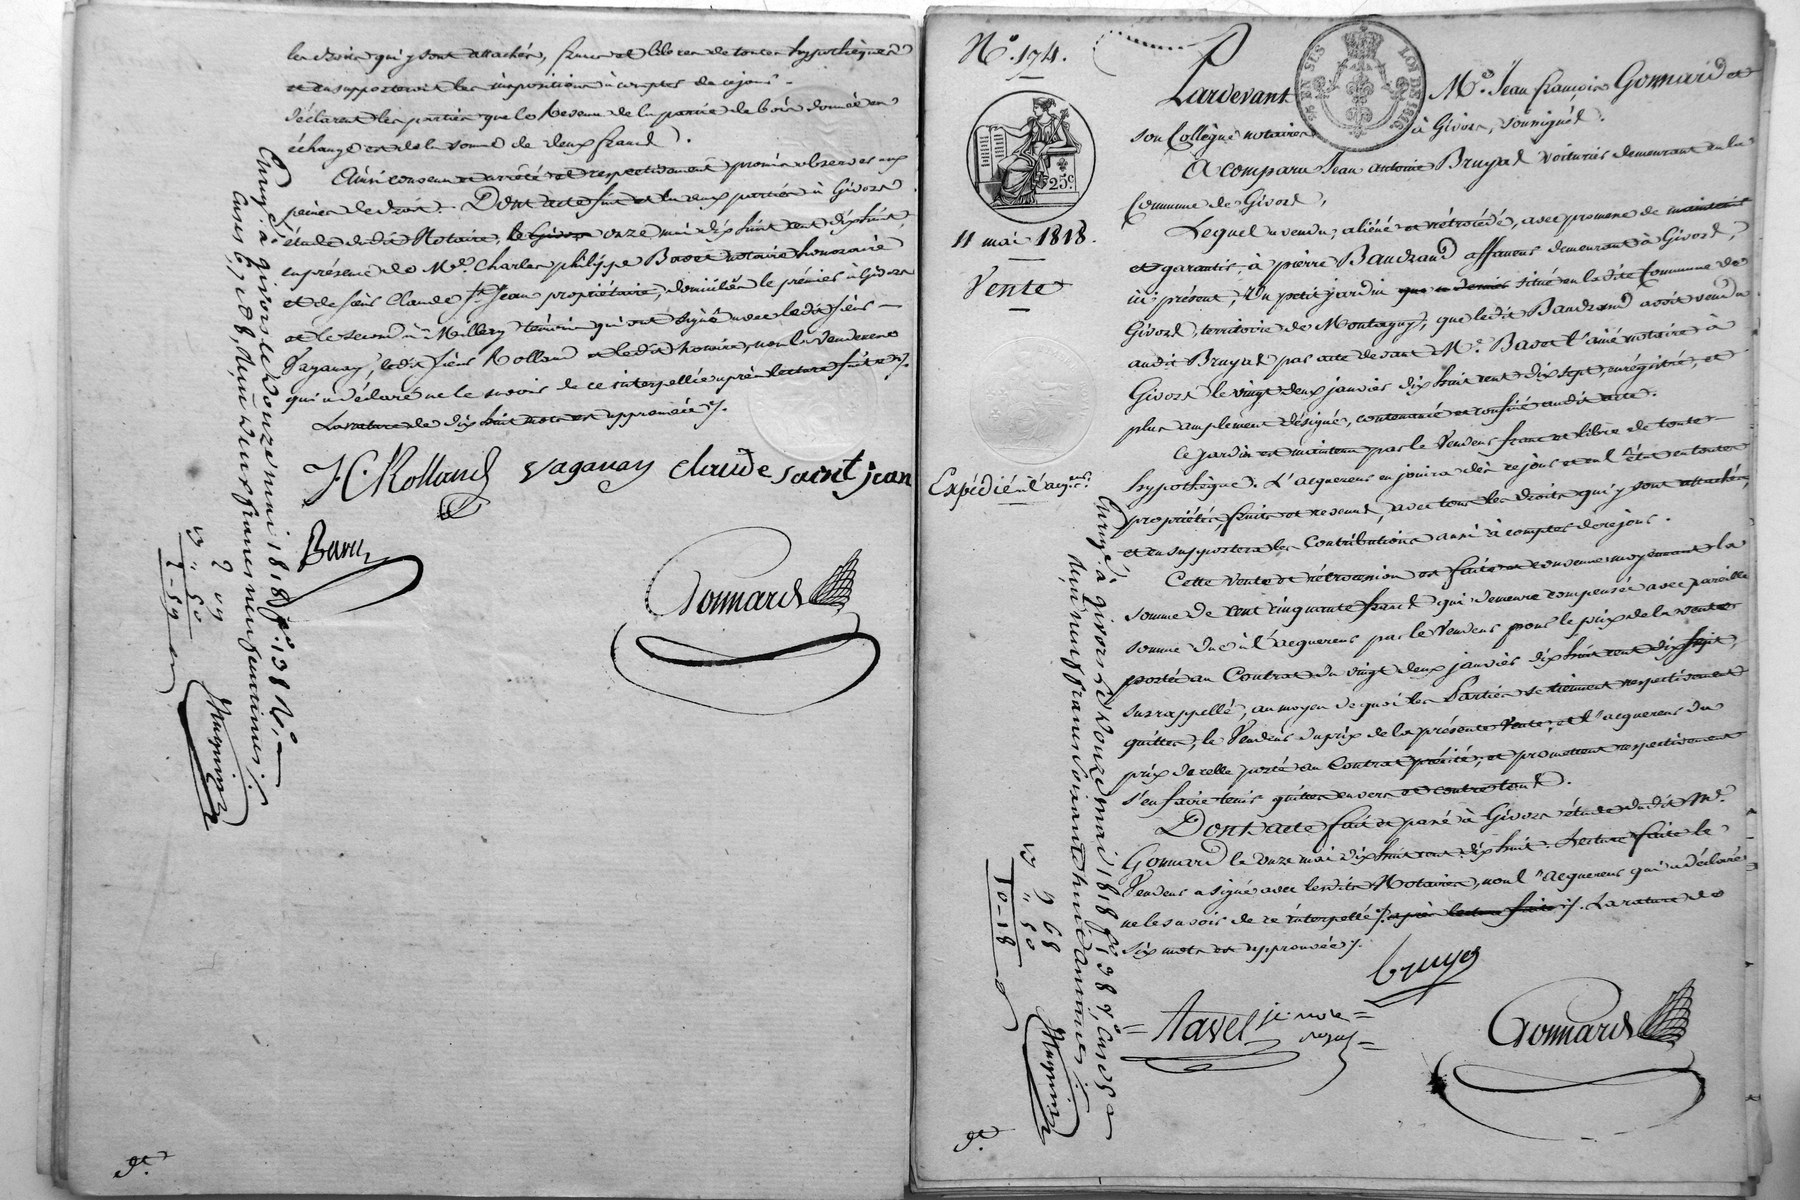 les droits qui y sont attachés, francs et libres de toutes hypothèques
et en supporteront les impositions à compter de ce jour.
déclarent les parties que le revenu de la partie de bois donnée en
échange est de la somme de deux francs.
Ainsi convenu et arrêté et respectivement promis observer aux
peines de droit. Dont acte fait et lu aux parties à Givors
étude dudit Notaire, le onze mai dix huit cent dix huit,
en présence de Me. Charles philippe Bovet notaire honoraire
et de sieur Claude St. Jean propriétaire, domiciliés le premier à Givors
et le second à Millery témoins qui ont signé avec ledit sieur
Vaganay, ledit sieur Rolland et ledit Notaire, non la venderesse
qui a déclaré ne le savoir de ce interpellée après lecture faite ./.
La rature de dix huit mots est approuvée ./.
J. C. Rolland Vaganay claude saint jean
Gonnard
Enregé. à givors le douze mai 1818 fo. 138 Ro.
deux francs neuf centimes
2 09
No. 174.
25c
11 mai 1818.
Vente
Expédié à l'acqr.
Pardevant Me. Jean françois Gonnard et
son Collègue notaires à Givors, soussignés.
A comparu Jean Antoine Bruyas voiturier demeurant en la
Commune de Givors,
Lequel a vendu, aliéné et rétrocédé, avec promesse de maintenir
et garantir, à pierre Baudrand affaneur demeurant à Givors,
ici présent, Un petit jardin situé en ladite Commune de
Givors, territoire de Montagny, que ledit Baudrand avoit vendu
audit Bruyas par acte devant Me. Bovet l'aîné notaire à
Givors le vingt deux janvier dix huit cent dix sept, enrégistré, et
plus amplement désigné, contenancé et confiné audit acte.
Ce jardin est maintenu par le Vendeur franc et libre de toute
hypothèque. L'acquereur en jouira dès ce jour et en l'état en toutes
propriétés, fruits et revenus, avec tous les droits qui y sont attachés,
et en supportera les Contributions aussi à compter de ce jour.
Cette vente et rétrocession est faite et convenue moyennant la
somme de cent cinquante francs qui demeure compensée avec pareille
somme due à l'acquereur par le Vendeur pour le prix de la vente
portée au Contrat du vingt deux janvier dix huit cent dix sept,
susrappellé, au moyen de quoi les Parties se tiennent respectivement
quittes, le Vendeur du prix de la présente Vente, et l'acquereur du
prix de celle portée au Contrat précité, et promettent respectivement
s'en faire tenir quittes envers et contre tous.
Dont acte fait et passé à Givors étude dudit Me.
Gonnard le onze mai dix huit cent dix huit. Lecture faite le
Vendeur a signé avec lesdits Notaires, non l'acquereur qui a déclaré
ne le savoir de ce interpellé ./. après lecture faite ./. La rature de
six mots est approuvée ./.
bruyas
Favel
Gonnard
Enregé. à givors le douze mai 1818 fo. 138 Vo. Case 5
reçu neuf francs soixante huit centimes
9 68
" 50
10-18